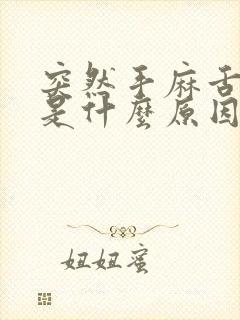 突然手麻舌
是什麼原因
妞妞蜜